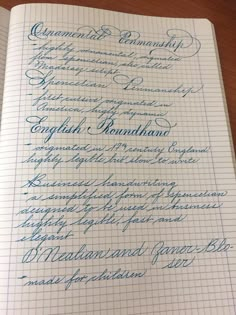 Ornamental Penmanship
- highly ornamental, originated
from Spencerian also called
Madarasz script
Spencerian Penmanship
- first cursive originated in
America highly dynamic
English Roundhand
- originated in 17th century England
highly legible but slow to write
Business handwriting
- a simplified form of Spencerian
designed to be used in business
highly legible, fast and
elegant
D'Nealian and Zaner-Blo-
ser
- made for children